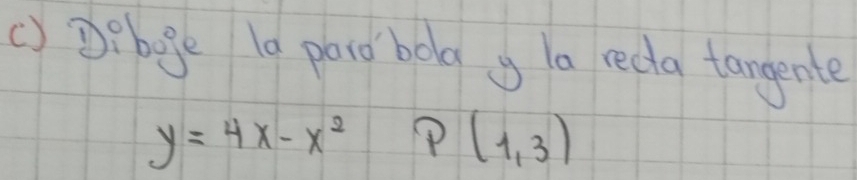 c) Diboje la parábola y la recta tangente
y = 4x - x² P(1,3)